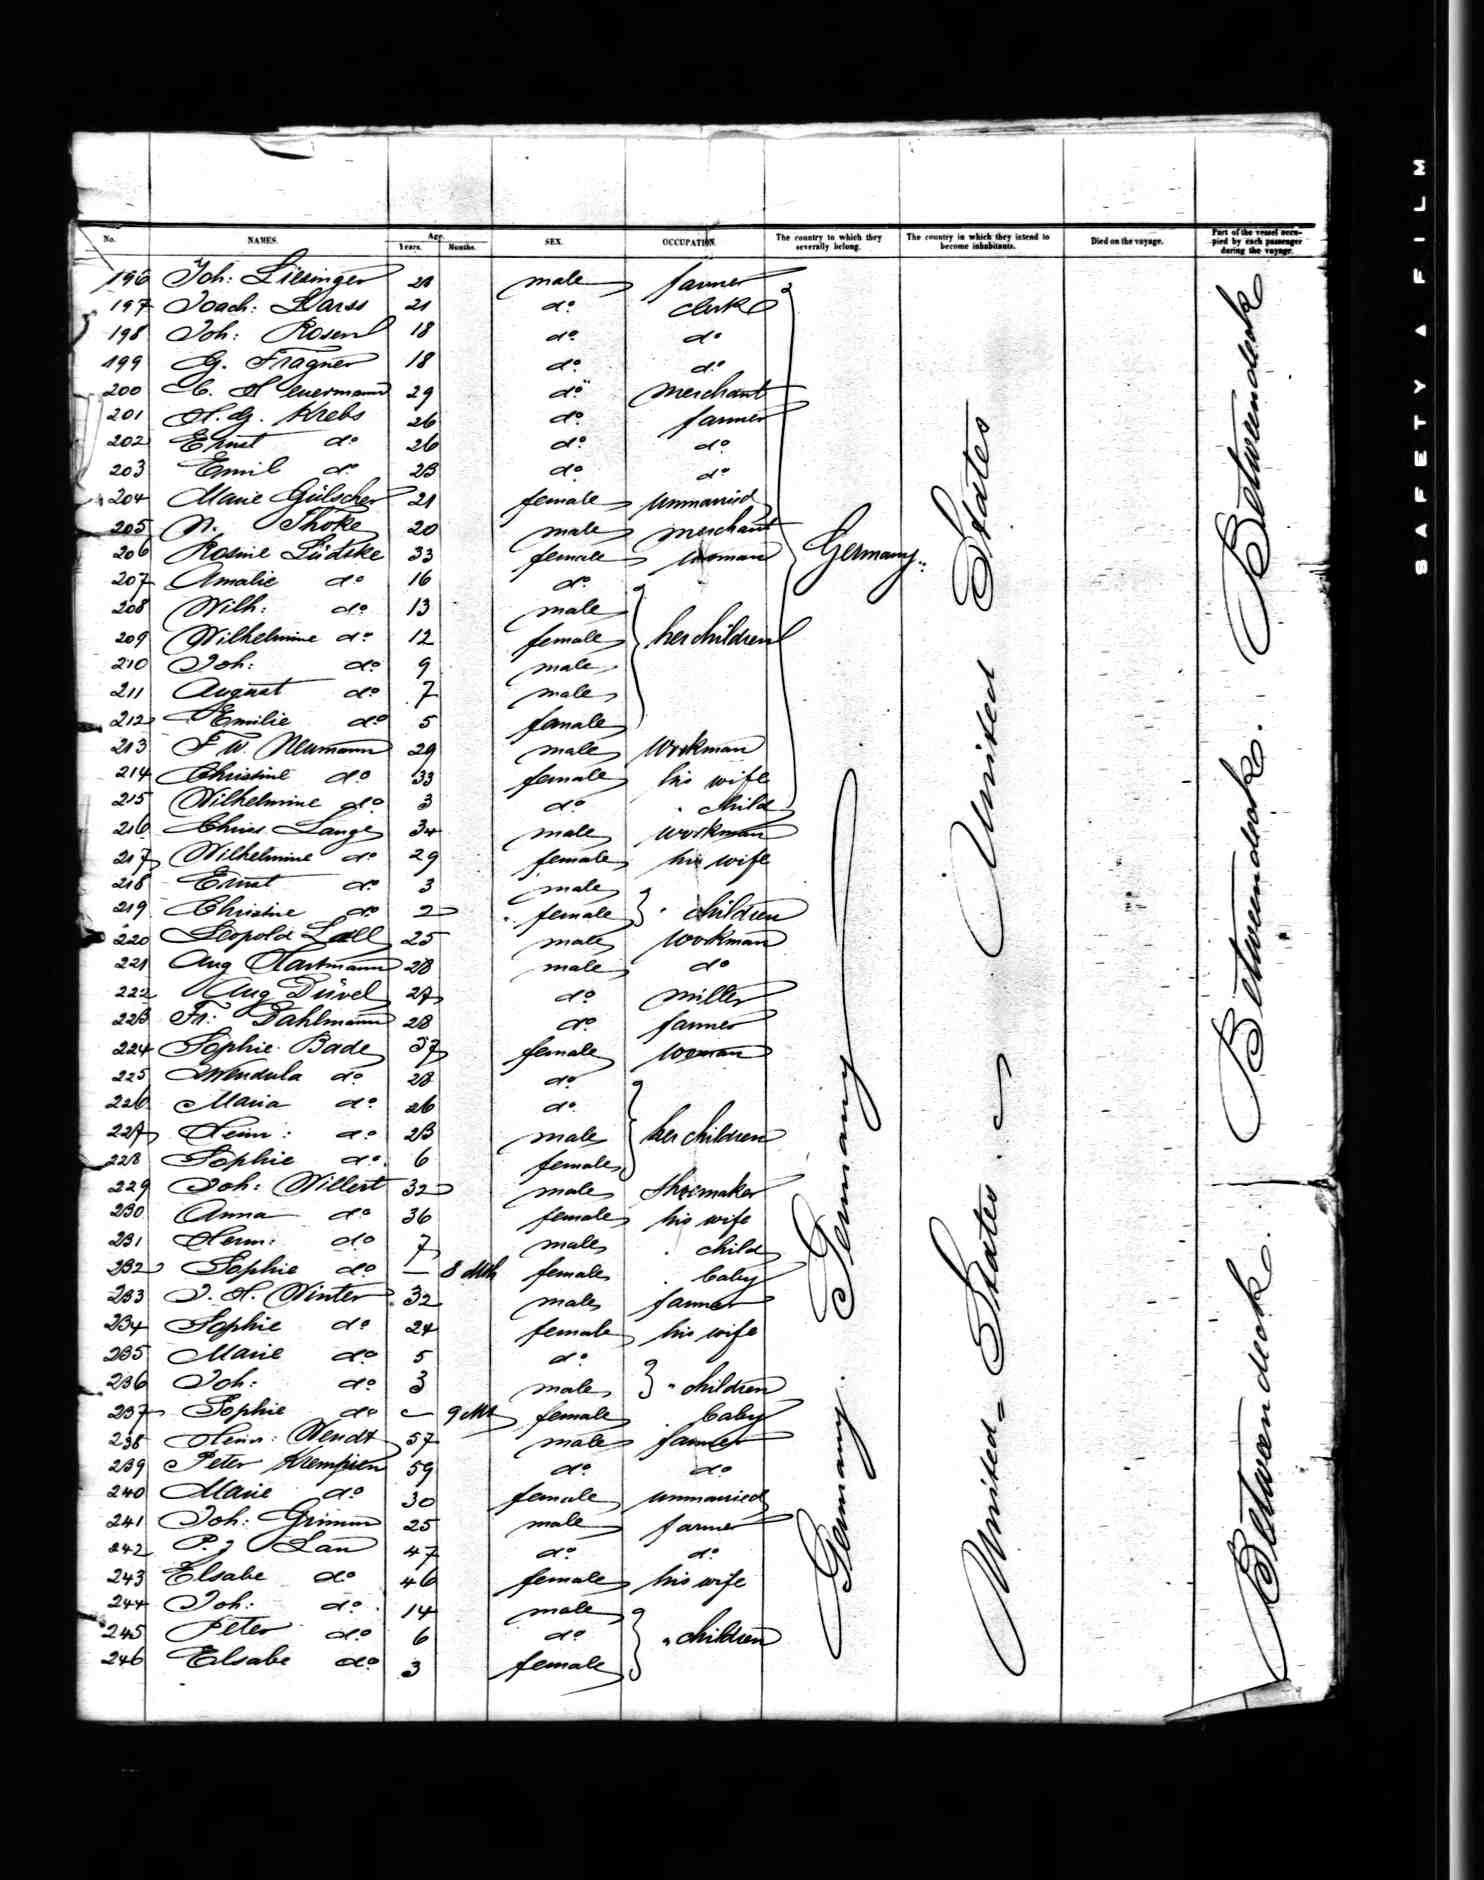 No. NAMES. Age. Years. Months. SEX. OCCUPATION. The country to which they severally belong. The country in which they intend to become inhabitants. Died on the voyage. Part of the vessel occupied by each passenger during the voyage.
196 Joh: Liesinger male farmer
197 Joach: 21 do. clerk
198 Joh: Rosen 18 do. do.
199 G. Fragner 18 do. do.
200 C. Heuermann 29 do. merchant
201 H. G. Krebs 26 do. farmer
202 Ernst do. 26 do. do.
203 Emil do. 23 do. do.
204 Marie Gülscher 21 female unmarried
205 N. Thöke 20 male merchant
206 Rosine Lüdtke 33 female woman
207 Amalie do. 16 do.
208 Wilh: do. 13 male
209 Wilhelmine do. 12 female her children
210 Joh: do. 9 male
211 August do. 7 male
212 Emilie do. 5 female
213 F W. Neumann 29 male workman
214 Christine do. 33 female his wife
215 Wilhelmine do. 3 do. " child
216 Chris. Lange 34 male workman
217 Wilhelmine do. 29 female his wife
218 Ernst do. 3 male
219 Christine do. 2 female " children
220 Leopold 25 male workman
221 Aug Hartmann 28 male do.
222 Aug Düvel 27 do. miller
223 Fr: Dahlmann 28 do. farmer
224 Sophie Bade 37 female woman
225 Wendula do. 28 do.
226 Maria do. 26 do.
227 Heinr: do. 23 male her children
228 Sophie do. 6 female
229 Joh: Willert 32 male shoemaker
230 Anna do. 36 female his wife
231 Herm: do. 7 male " child
232 Sophie do. — 8 Mth female " baby
233 J. H. Winter 32 male farmer
234 Sophie do. 24 female his wife
235 Marie do. 5 do.
236 Joh: do. 3 male " children
237 Sophie do. — 9 Mt female " baby
238 Heinr: Wendt 57 male farmer
239 Peter Krempien 59 do. do.
240 Marie do. 30 female unmarried
241 Joh: Grimm 25 male farmer
242 P. J Lau 47 do. do.
243 Elsabe do. 46 female his wife
244 Joh: do. 14 male
245 Peter do. 6 do. " children
246 Elsabe do. 3 female
Germany.
Germany
Germany.
United States
United States
Betweendeck
Betweendeck.
Betweendeck.
SAFETY FILM